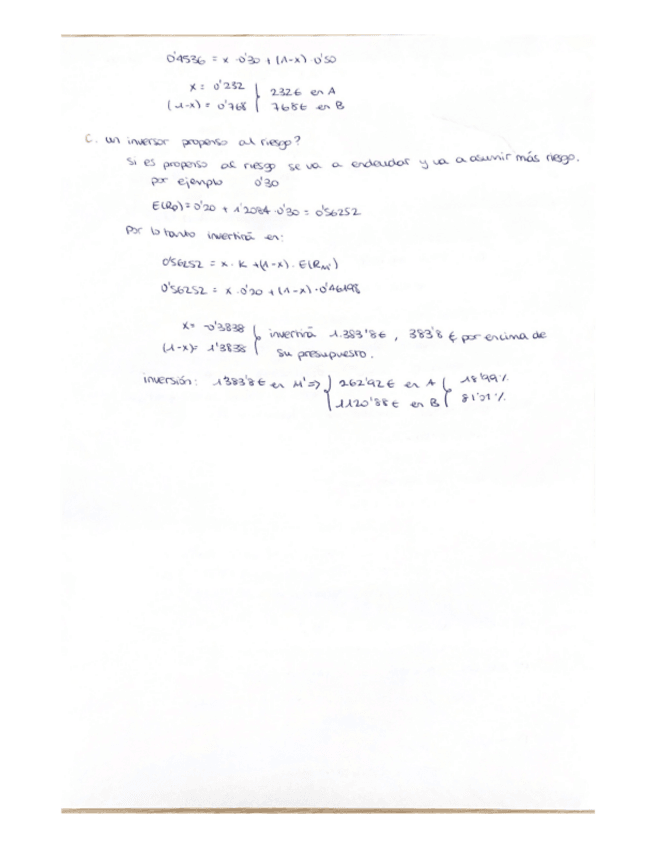 0'4536 = x · 0'30 + (1-x) · 0'50
x = 0'232 } 232€ en A
(1-x) = 0'768 } 768€ en B
C. un inversor propenso al riesgo?
Si es propenso al riesgo se va a endeudar y va a asumir más riesgo.
por ejemplo 0'30
E(Rp) = 0'20 + 1'2084 · 0'30 = 0'56252
Por lo tanto invertirá en:
0'56252 = x · K + (1-x) · E(RM')
0'56252 = x · 0'20 + (1-x) · 0'46198
x = -0'3838 } invertirá 1.383'8€, 383'8€ por encima de
(1-x) = 1'3838 } su presupuesto.
inversión: 1383'8€ en M' => { 262'92€ en A { 18'99%
1120'88€ en B { 81'01%